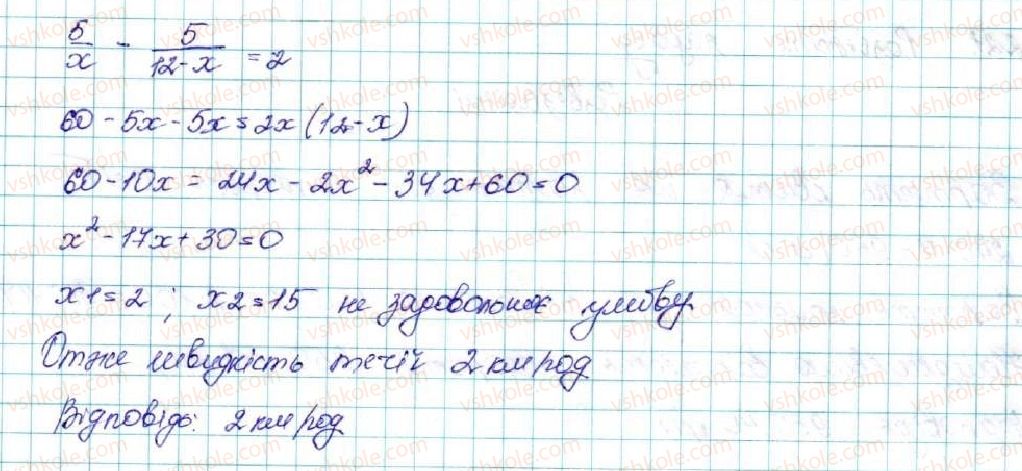 5/x - 5/(12-x) = 2
60 - 5x - 5x = 2x(12-x)
60 - 10x = 24x - 2x² - 34x + 60 = 0
x² - 17x + 30 = 0
x1 = 2 ; x2 = 15 не задовольняє умову.
Отже швидкість течії 2 км/год
Відповідь: 2 км/год